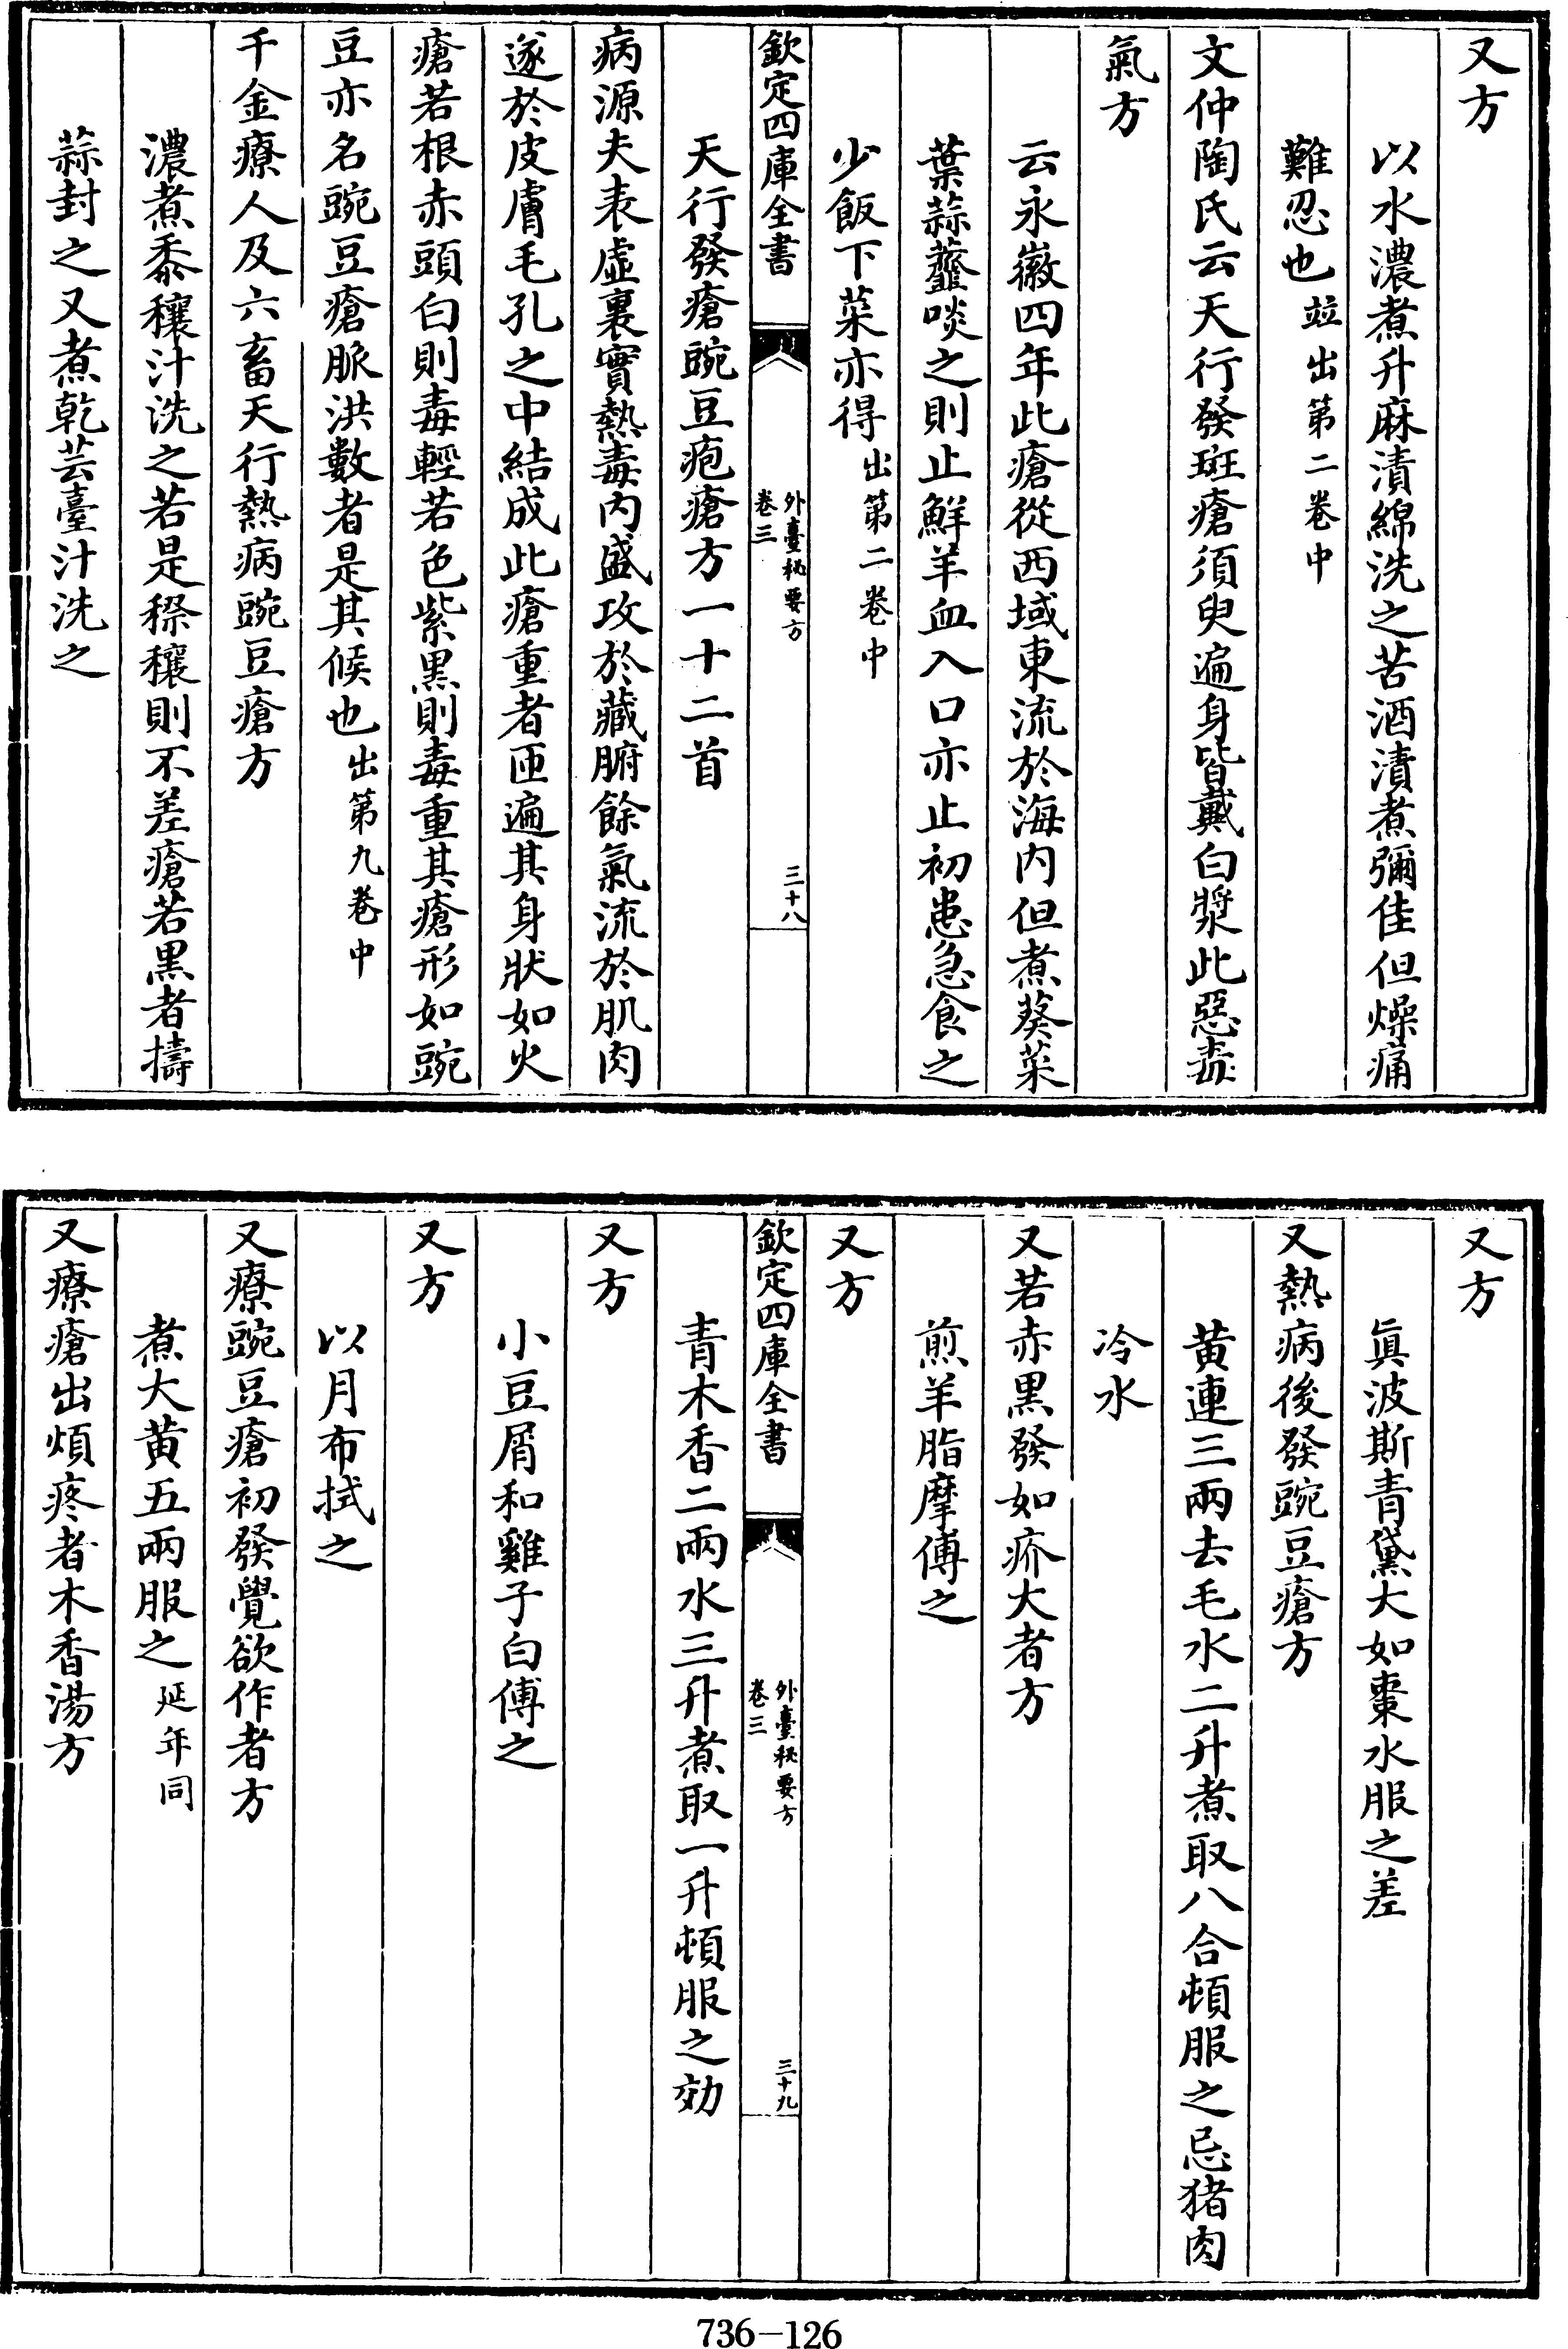 又方
以水濃煮升麻漬綿洗之苦酒漬煮彌佳但燥痛
難忍也竝出第二卷中
文仲陶氏云天行發斑瘡須臾遍身皆戴白漿此惡毒
氣方
云永徽四年此瘡從西域東流於海内但煮葵菜
葉蒜虀啖之則止鮮羊血入口亦止初患急食之
少飯下菜亦得出第二卷中
欽定四庫全書
外臺秘要方
卷三
三十八
天行發瘡豌豆疱瘡方一十二首
病源夫表虛裏實熱毒内盛攻於藏腑餘氣流於肌肉
遂於皮膚毛孔之中結成此瘡重者匝遍其身狀如火
瘡若根赤頭白則毒輕若色紫黒則毒重其瘡形如豌
豆亦名豌豆瘡脈洪數者是其候也出第九卷中
千金療人及六畜天行熱病豌豆瘡方
濃煮黍穰汁洗之若是穄穰則不差瘡若黒者擣
蒜封之又煮乾芸臺汁洗之
又方
眞波斯青黛大如棗水服之差
又熱病後發豌豆瘡方
黄連三兩去毛水二升煮取八合頓服之忌猪肉
冷水
又若赤黒發如疥大者方
煎羊脂摩傅之
又方
欽定四庫全書
外臺秘要方
卷三
三十九
青木香二兩水三升煮取一升頓服之効
又方
小豆屑和雞子白傅之
又方
以月布拭之
又療豌豆瘡初發覺欲作者方
煮大黄五兩服之延年同
又療瘡出煩疼者木香湯方
736-126